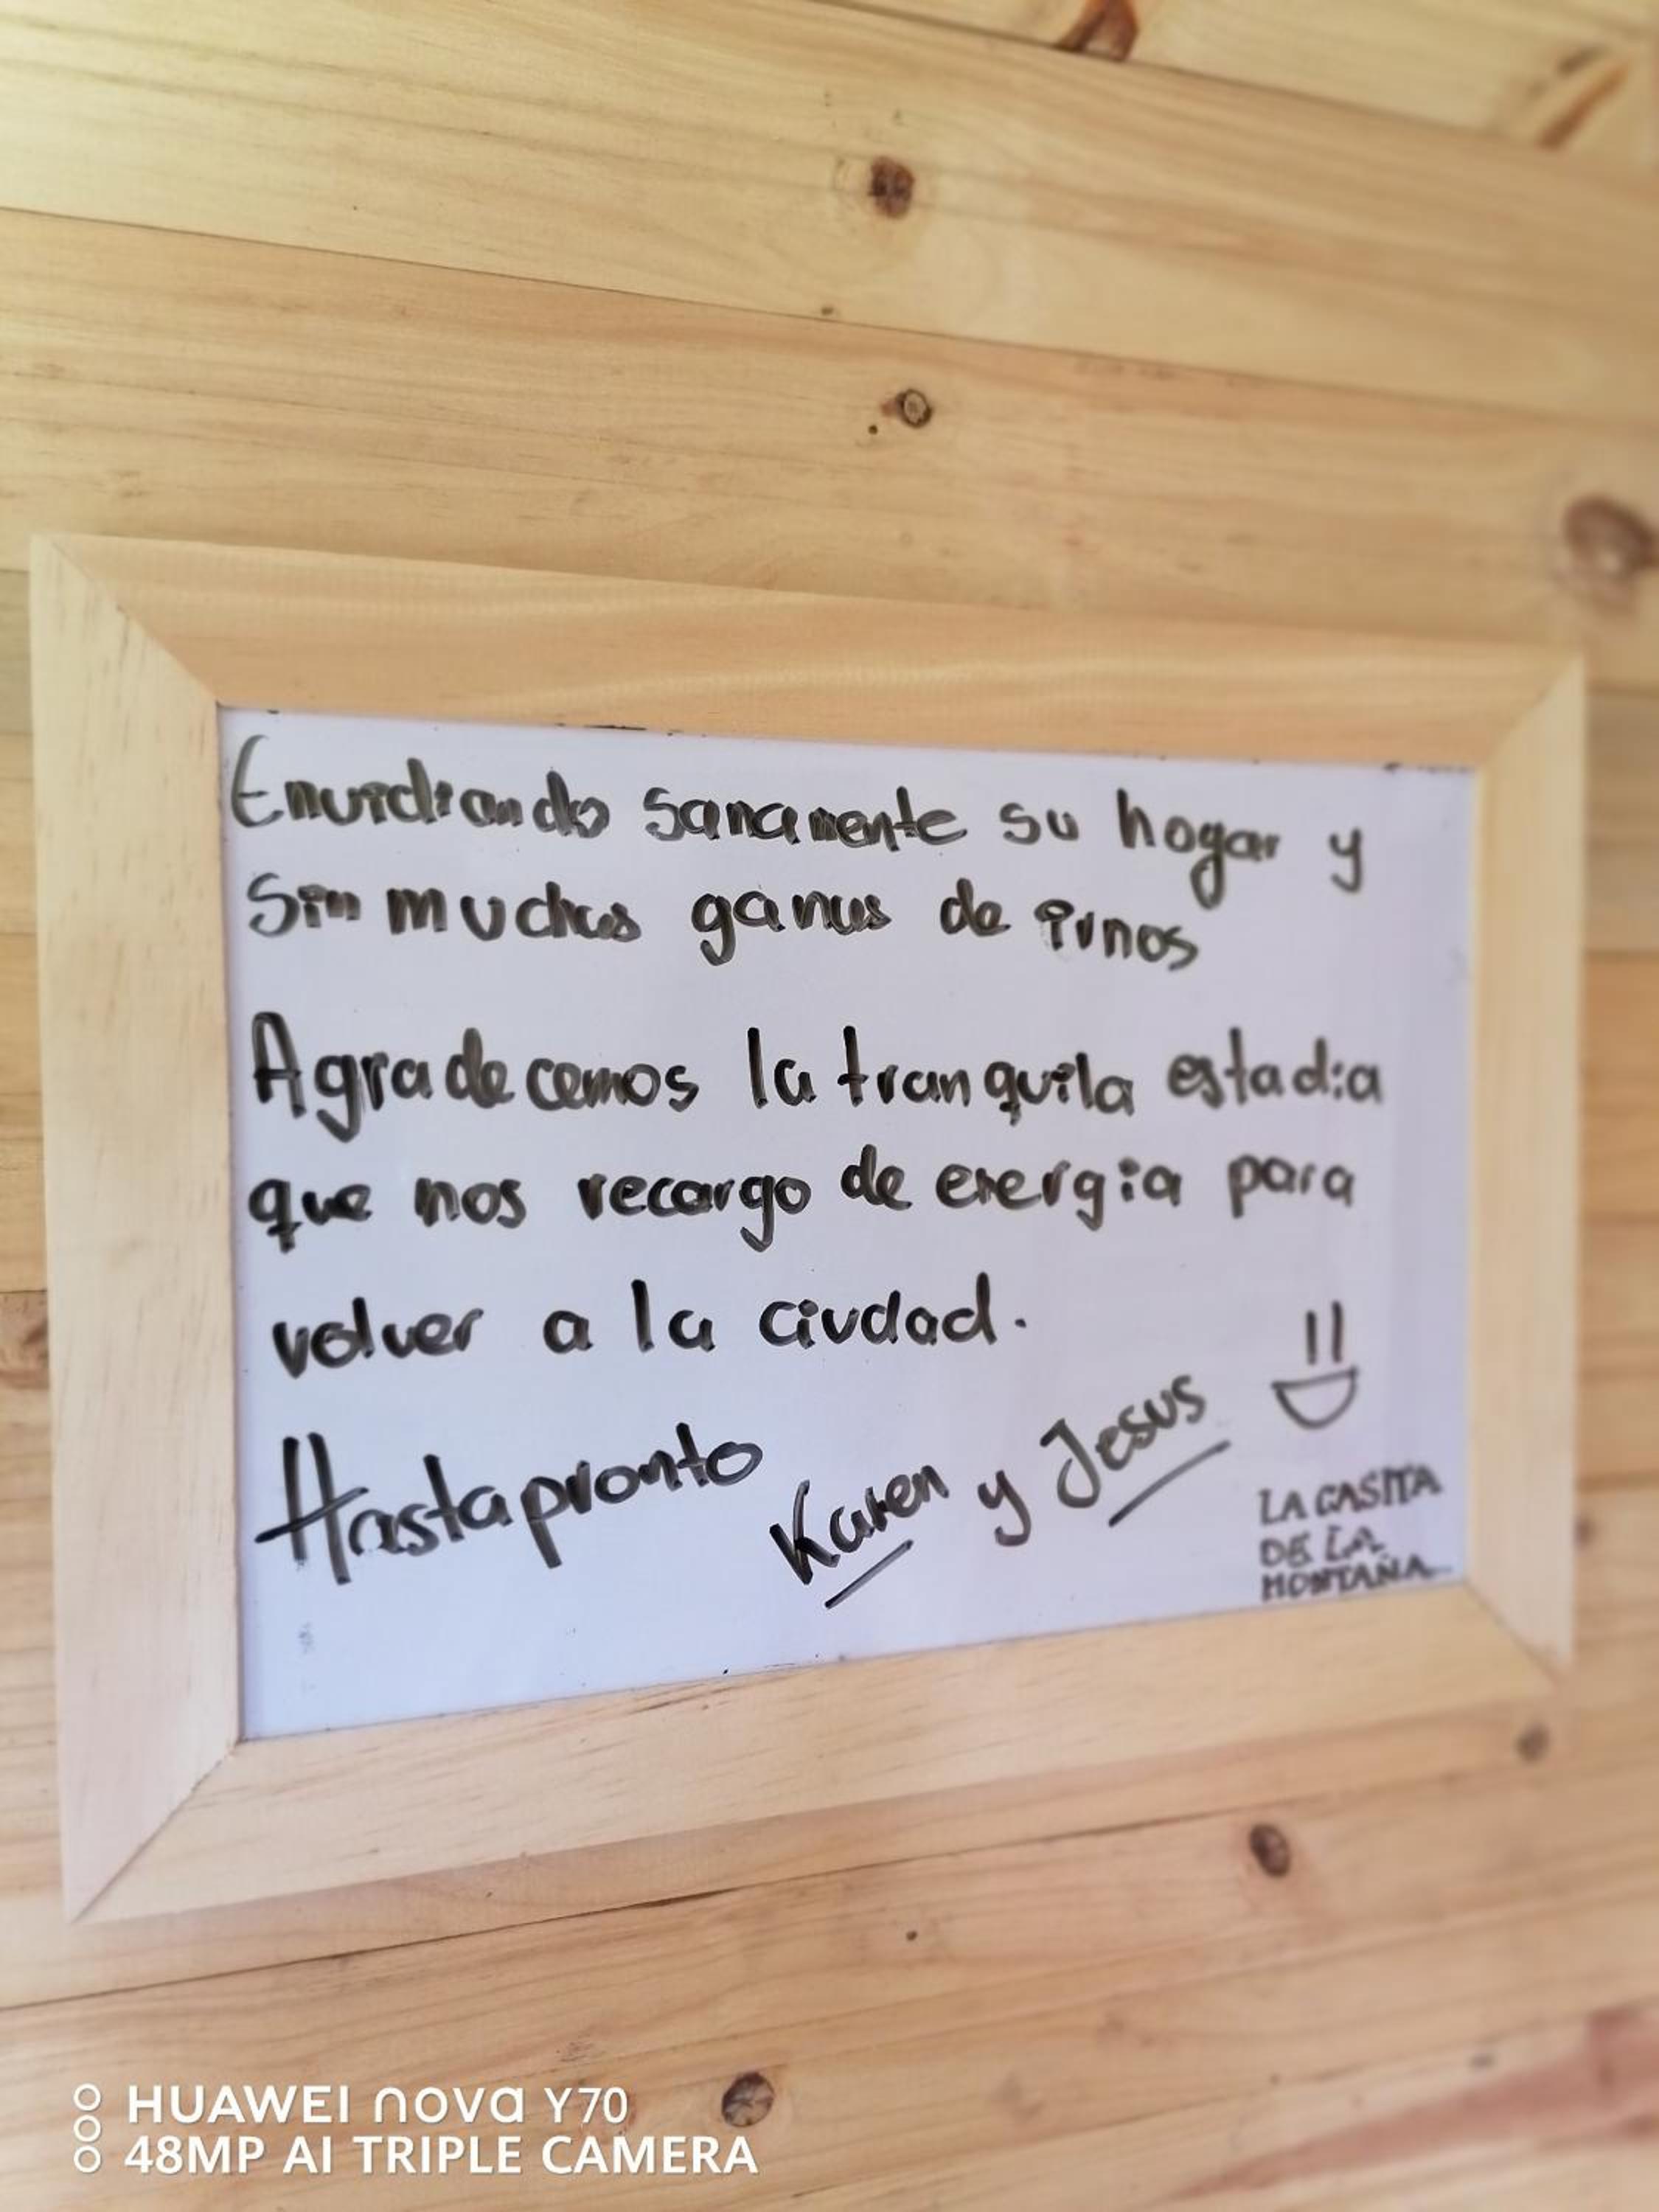 Envidiando sanamente su hogar y
Sin muchas ganas de irnos
Agradecemos la tranquila estadia
que nos recargo de energia para
volver a la ciudad.
Hasta pronto
Karen y Jesus
LA CASITA
DE LA
MONTAÑA
HUAWEI nova Y70
48MP AI TRIPLE CAMERA